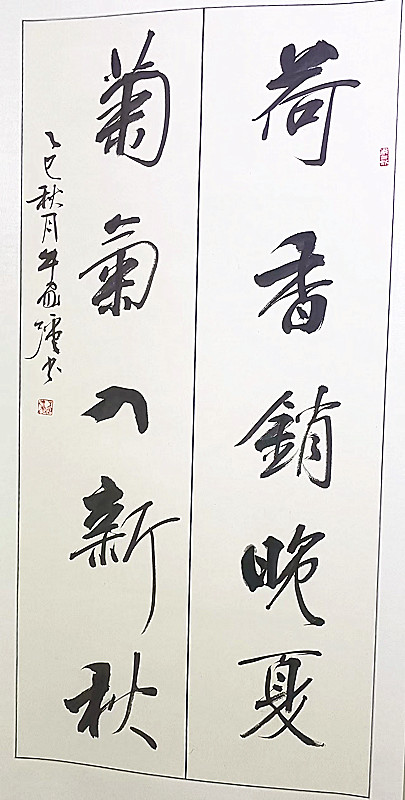 荷香銷晚夏
菊氣入新秋
乙巳秋月